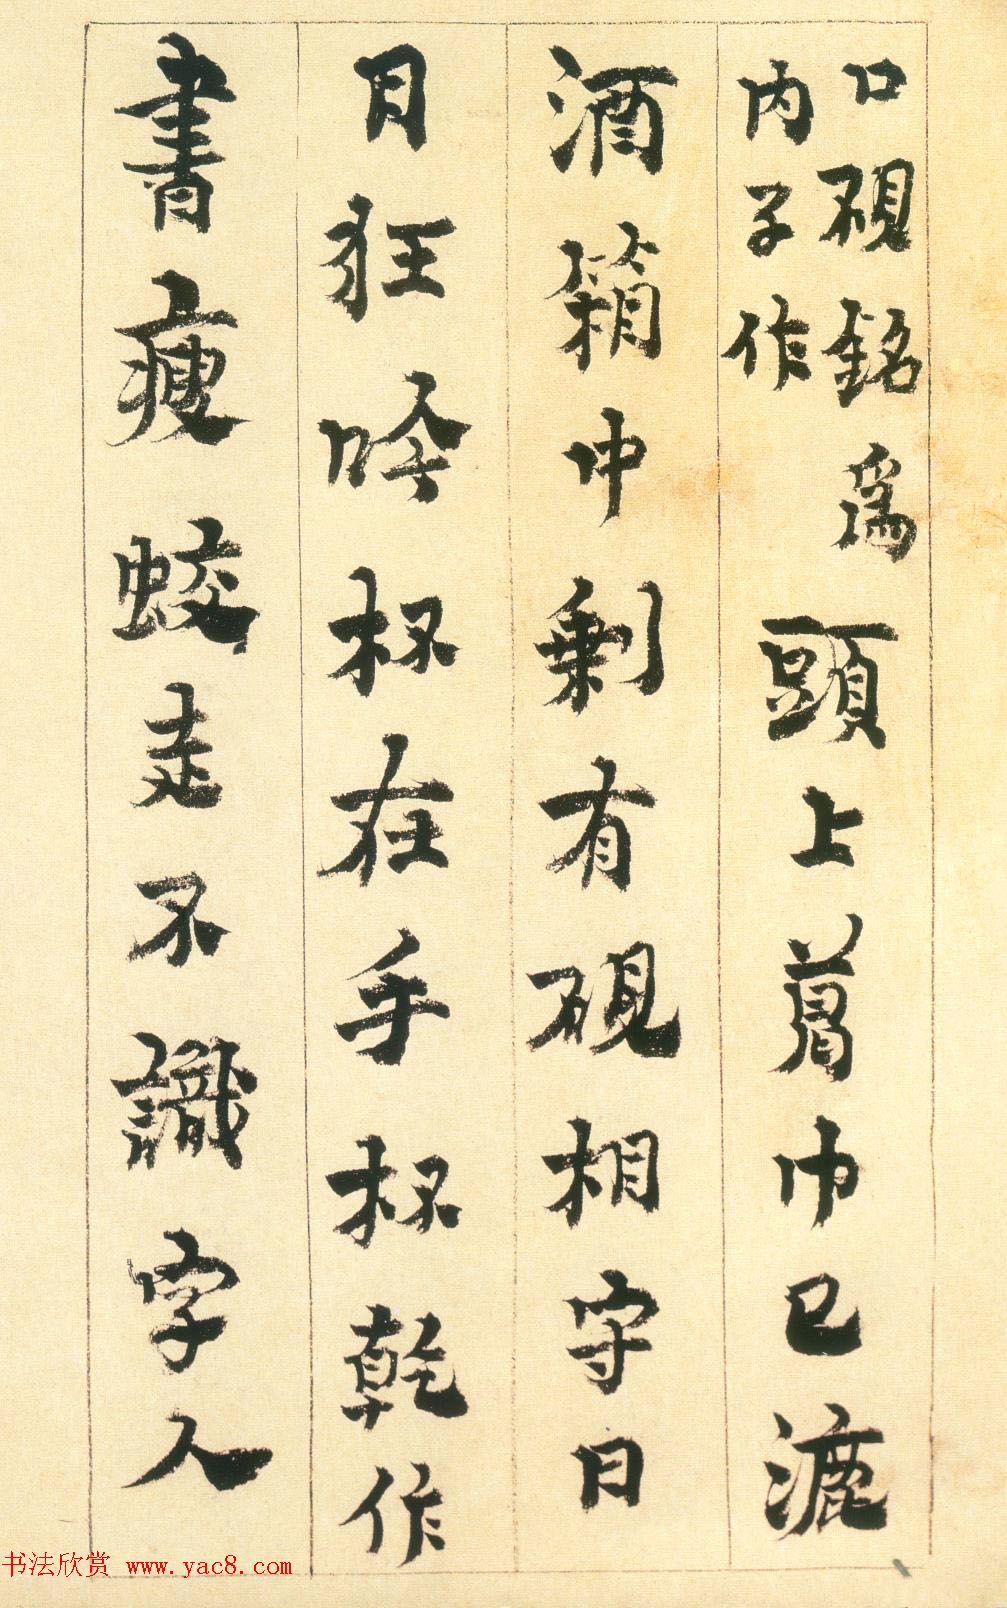 口硯銘為
内子作
頭上葛巾已漉
酒箱中剩有硯相守日
月狂吟杯在手杯乾作
書瘦蛟走不識字人
书法欣赏 www.yac8.com